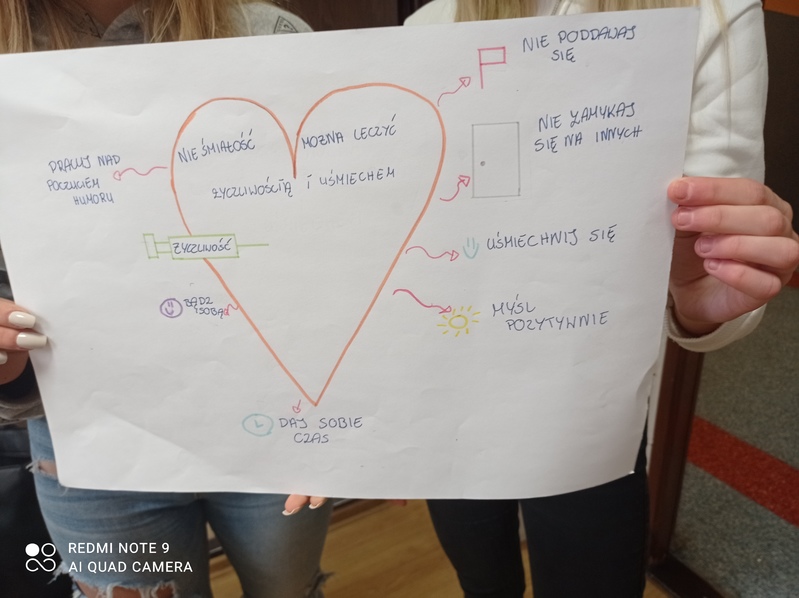 NIE PODDAWAJ
SIĘ
NIE ZAMYKAJ
SIĘ NA INNYCH
NIEŚMIAŁOŚĆ MOŻNA LECZYĆ
ŻYCZLIWOŚCIĄ I UŚMIECHEM
PRACUJ NAD
POCZUCIEM
HUMORU
ŻYCZLIWOŚĆ
UŚMIECHNIJ SIĘ
BĄDŹ
SOBĄ
MYŚL
POZYTYWNIE
DAJ SOBIE
CZAS
REDMI NOTE 9
AI QUAD CAMERA